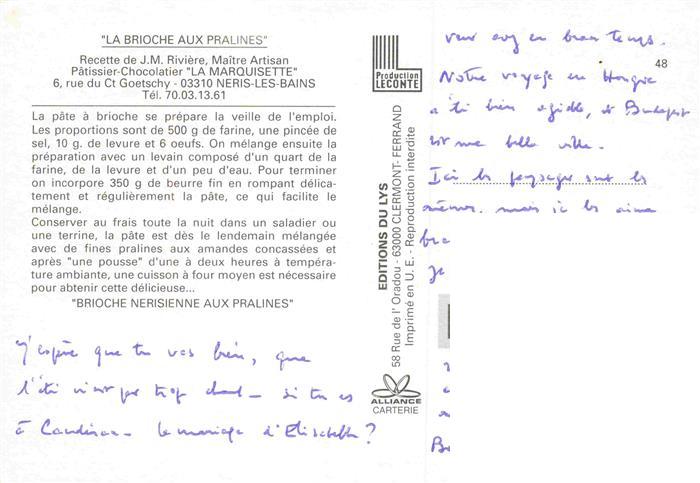 "LA BRIOCHE AUX PRALINES"
Recette de J.M. Rivière, Maître Artisan
Pâtissier-Chocolatier "LA MARQUISETTE"
6, rue du Ct Goetschy - 03310 NERIS-LES-BAINS
Tél. 70.03.13.61
La pâte à brioche se prépare la veille de l'emploi.
Les proportions sont de 500 g de farine, une pincée de
sel, 10 g. de levure et 6 oeufs. On mélange ensuite la
préparation avec un levain composé d'un quart de la
farine, de la levure et d'un peu d'eau. Pour terminer
on incorpore 350 g de beurre fin en rompant délica-
tement et régulièrement la pâte, ce qui facilite le
mélange.
Conserver au frais toute la nuit dans un saladier ou
une terrine, la pâte est dès le lendemain mélangée
avec de fines pralines aux amandes concassées et
après "une pousse" d'une à deux heures à tempéra-
ture ambiante, une cuisson à four moyen est nécessaire
pour obtenir cette délicieuse...
"BRIOCHE NERISIENNE AUX PRALINES"
J'espère que tu vas bien, que
l'été n'est pas trop chaud - si tu es
à - le mariage d'Elisabeth ?
Production
LECONTE
EDITIONS DU LYS
58 Rue de l' Oradou - 63000 CLERMONT- FERRAND
Imprimé en U. E. - Reproduction interdite
ALLIANCE
CARTERIE
48
avez un beau temps.
Notre voyage en Hongrie
a été bien agréable, et Budapest
est une belle ville.
Ici les paysages sont les
mêmes. mais je les aime
je